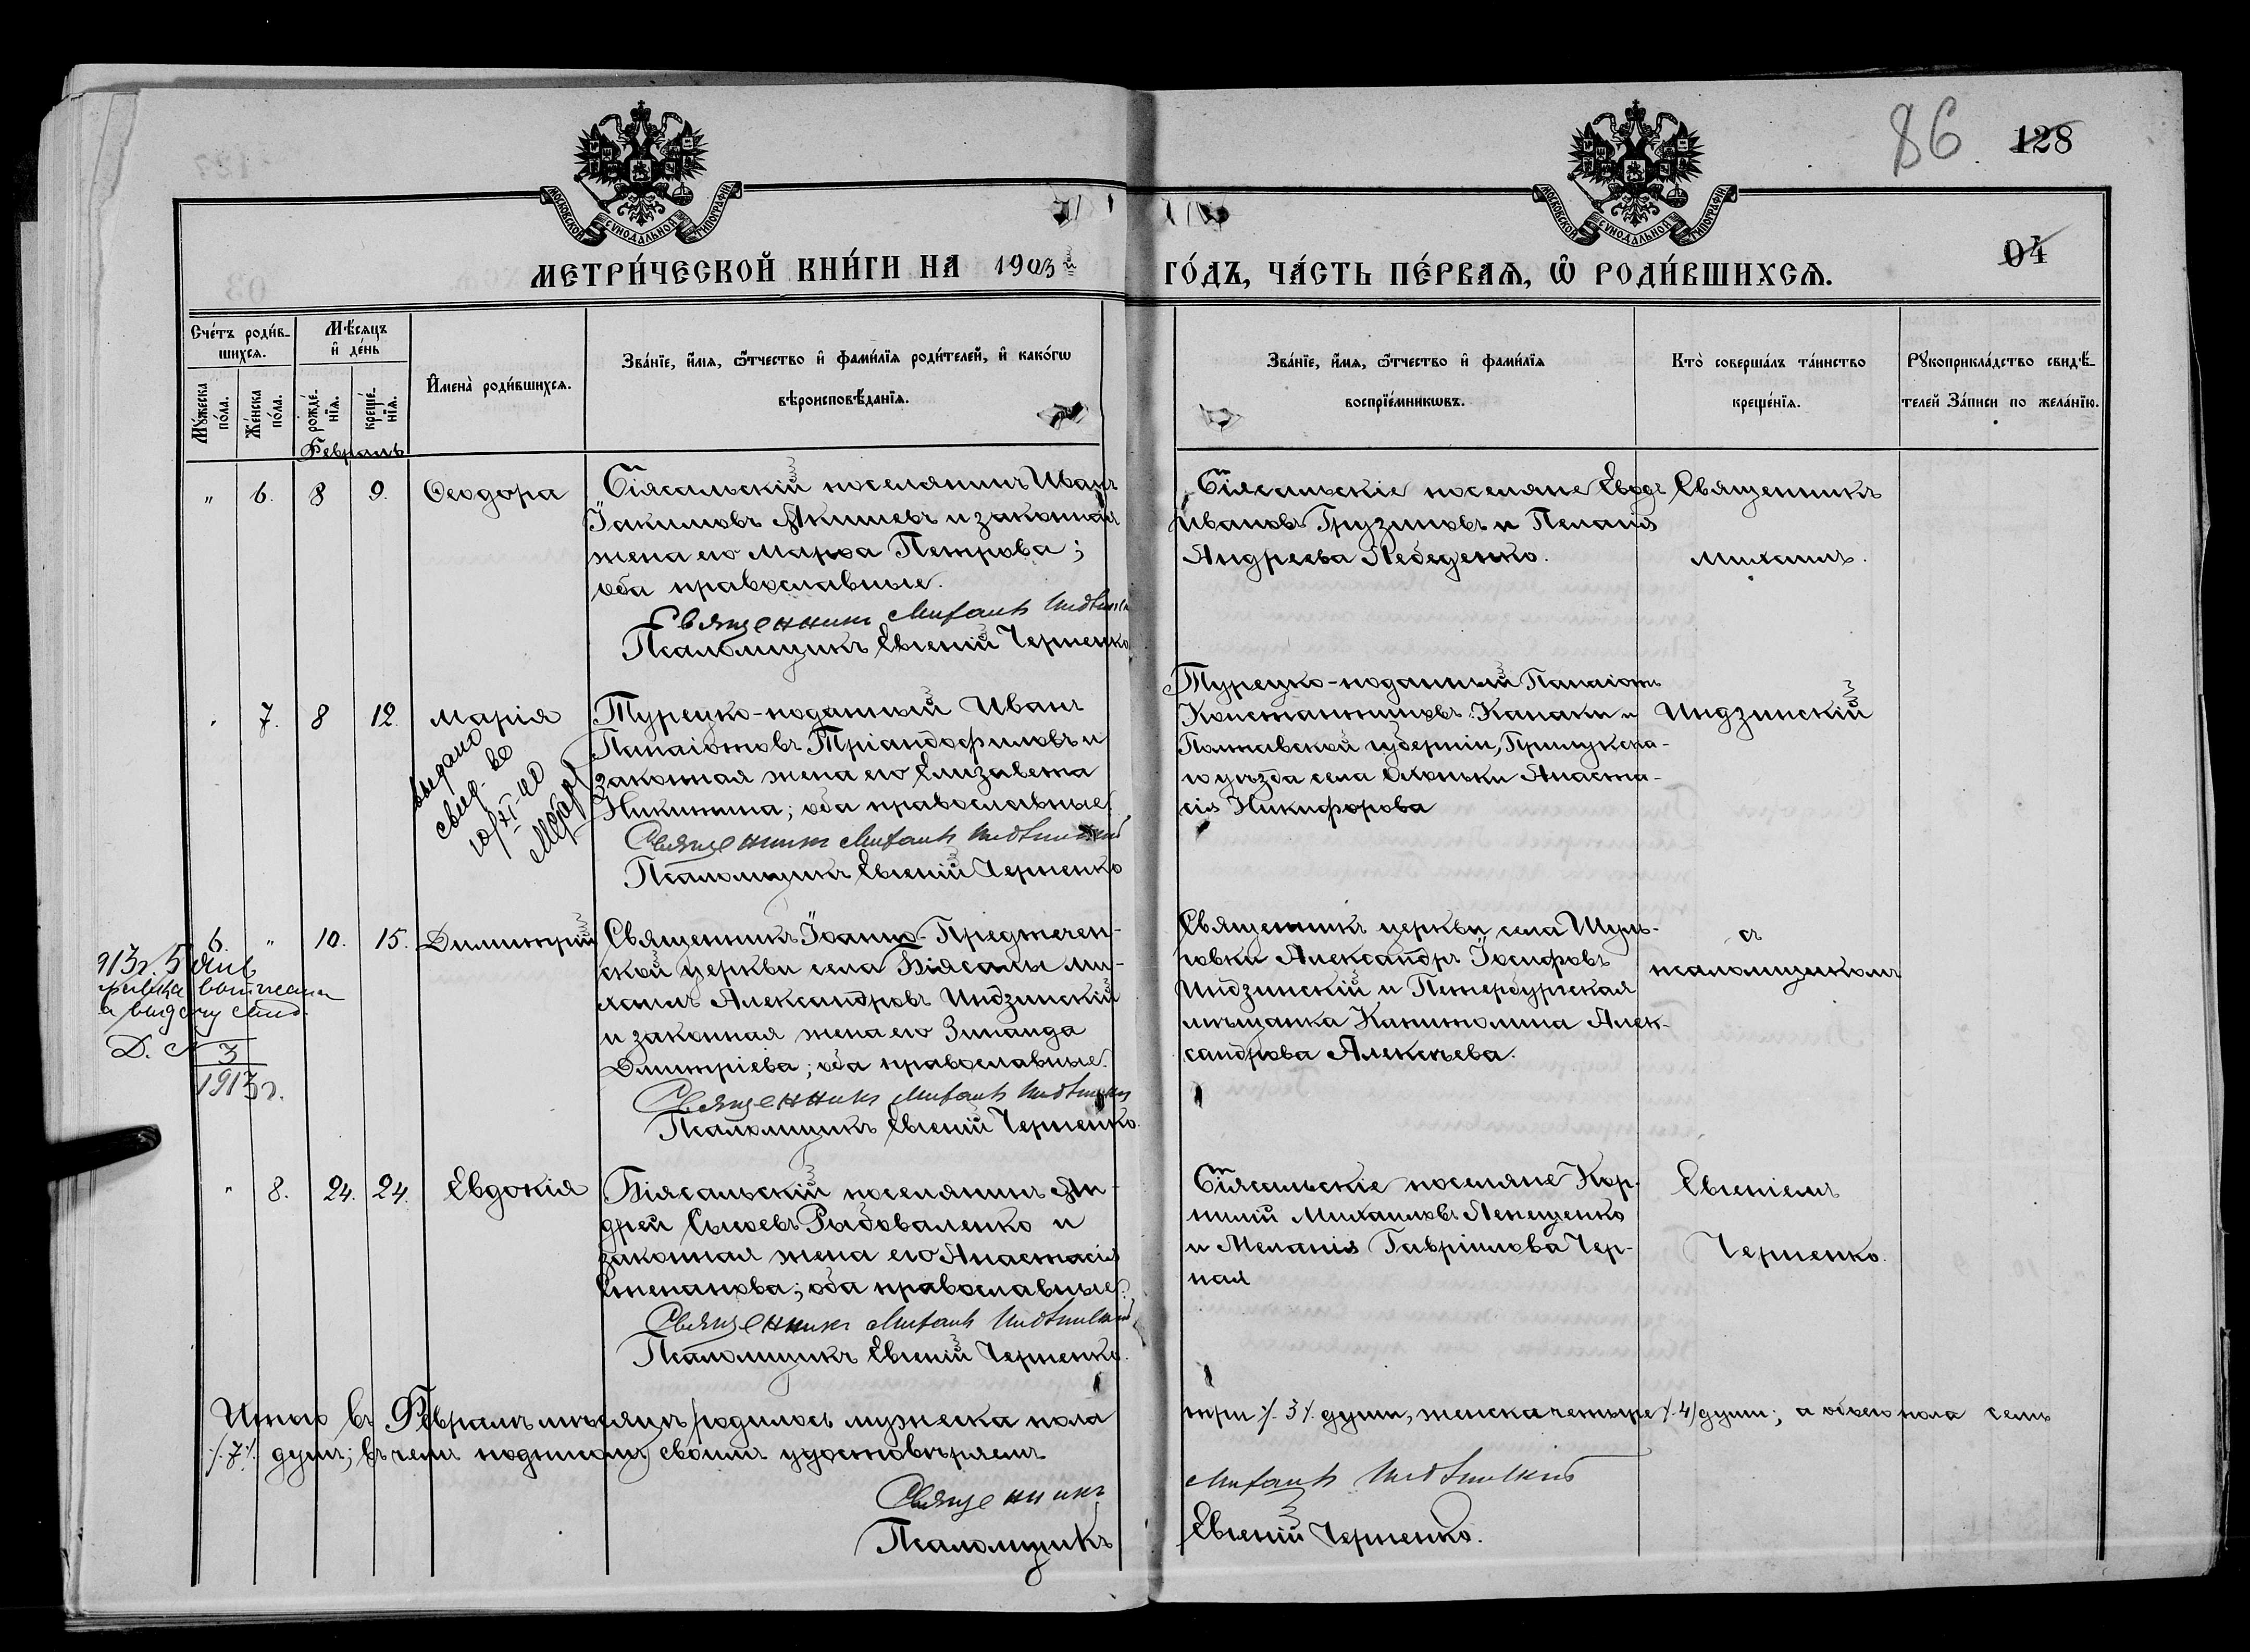 86
128
04
МОСКОВСКОЙ СУНОДАЛЬНОЙ ТИПОГРАФІИ
МОСКОВСКОЙ СУНОДАЛЬНОЙ ТИПОГРАФІИ
МЕТРИ́ЧЕСКОЙ КНИ́ГИ НА 1903й
ГО́ДЪ, ЧА́СТЬ ПЕ́РВАѦ, Ѡ҆ РОДИ́ВШИХСѦ.
Сче́тъ роди́в-
шихсѧ.
Мѣ́сѧцъ
и҆ де́нь
Мꙋ́жеска
по́ла.
Же́нска
по́ла.
рожде́-
нїѧ.
креще́-
нїѧ.
И҆мена̀ роди́вшихсѧ.
Зва́нїе, и҆́мѧ, ѻ҆́тчество и҆ фами́лїѧ роди́телей, и҆ како́гѡ
вѣроисповѣ́данїѧ.
Зва́нїе, и҆́мѧ, ѻ҆́тчество и҆ фами́лїѧ
воспрїе́мникѡвъ.
Кто̀ соверша́лъ та́инство
креще́нїѧ.
Рꙋкоприкла́дство свидѣ́-
телей За́писи по жела́нїю.
Февраль
" 6. 8 9. Ѳеодора
Біясальскій поселянинъ Иванъ
Іакимовъ Акишевъ и законная
жена его Марѳа Петрова;
оба православные.
Священникъ Михаилъ Индзинскій
Псаломщикъ Евгеній Черненко
Біясальскіе поселяне Еводъ
Ивановъ Грузиновъ и Пелагія
Андреева Лебеденко.
Священникъ
Михаилъ.
" 7. 8 12. Марія
выдано
свид-во
10/XI-40
Турецко-поданный Иванъ
Панаіотовъ Тріандофиловъ и
законная жена его Елизавета
Никитина; оба православные.
Священникъ Михаилъ Индзинскій
Псаломщикъ Евгеній Черненко
Турецко-поданный Панаіотъ
Константиновъ Канаки и
Полтавской губерніи, Прилукска-
го уѣзда села Олоньки Анаста-
сія Никифорова
Индзинскій
6. " 10. 15. Димитрій
913г. 5 Янв.
Д. № 3
1913г.
Священникъ Іоанно-Предтечен-
ской церкви села Біясалы Ми-
хаилъ Александровъ Индзинскій
и законная жена его Зинаида
Димитріева; оба православные.
Священникъ Михаилъ Индзинскій
Псаломщикъ Евгеній Черненко.
Священникъ церкви села Шуль-
говки Александръ Іосифовъ
Индзинскій и Петербургская
мѣщанка Капитолина Алек-
сандрова Алексѣева.
съ
псаломщикомъ
" 8. 24. 24. Евдокія
Біясальскій поселянинъ Ан-
дрей Сысоевъ Рыбоваленко и
законная жена его Анастасія
Степанова; оба православные.
Священникъ Михаилъ Индзинскій
Псаломщикъ Евгеній Черненко.
Біясальскіе поселяне Кор-
нилій Михаиловъ Лепещенко
и Меланія Гавріилова Чер-
ная
Евгеніемъ
Черненко.
Итого въ Февралѣ мѣсяцѣ родилось мужеска пола
три /. 3 /. души, женска четыре /. 4 / души; а обоего пола семь
/. 7 /. душъ; въ чемъ подписомъ своимъ удостовѣряемъ
Священникъ
Михаилъ Индзинскій
Псаломщикъ
Евгеній Черненко.